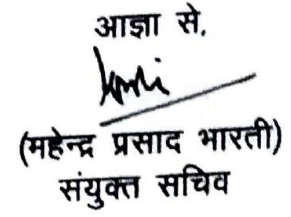 आज्ञा से,
(महेन्द्र प्रसाद भारती)
संयुक्त सचिव